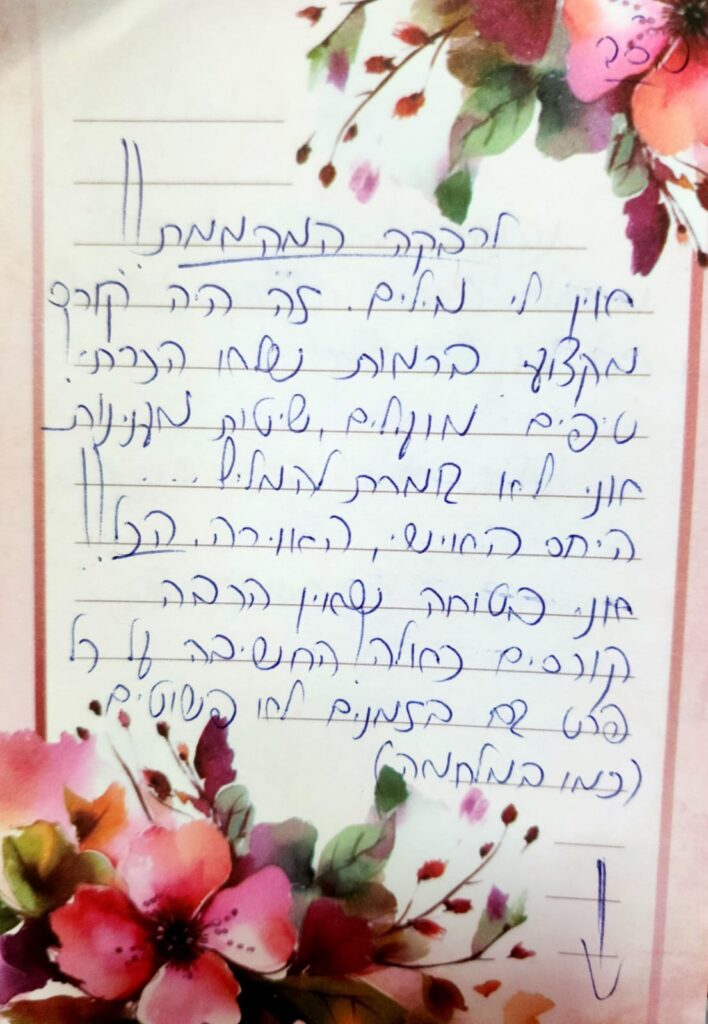 בס"ד
לרבקה המהממת!!
אין לי מילים. זה היה קורס
מקצועי ברמות שלא הכרתי!
טיפים מועילים, שיטות מעניינות
אני לא גומרת להמליץ....
היחס האישי, האוירה, הכל!!
אני בטוחה שאין הרבה
קורסים כאלה! החשיבה על כל
פרט גם בזמנים לא פשוטים
(כמו במלחמה)